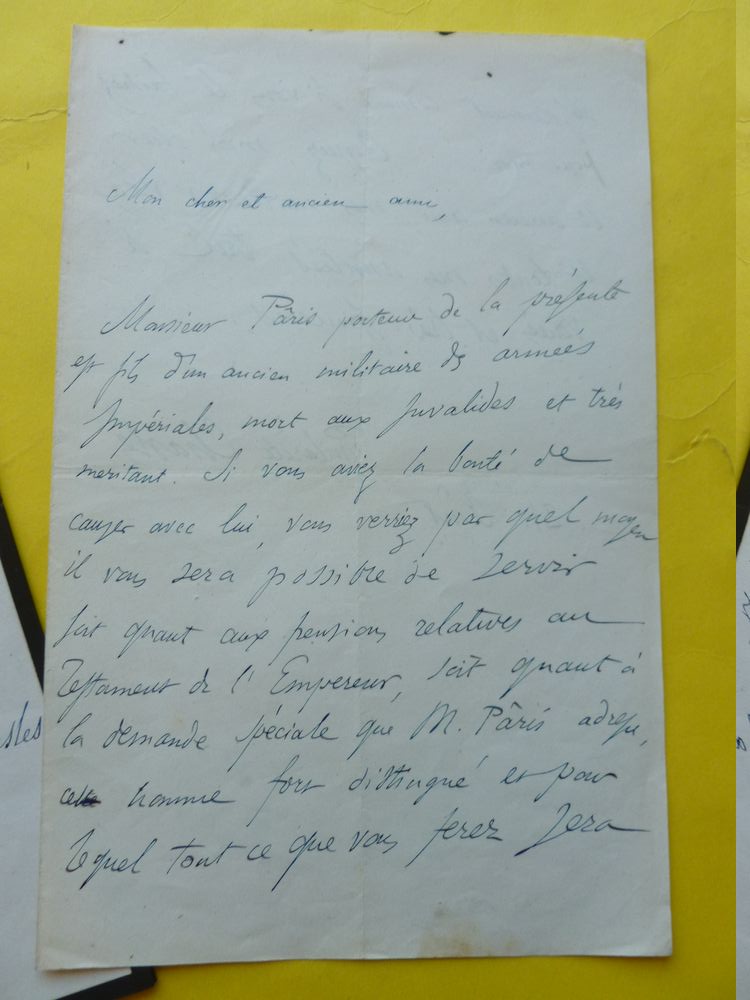 Mon cher et ancien ami,
Monsieur Pâris porteur de la présente
est fils d'un ancien militaire des armées
Impériales, mort aux Invalides et très
meritant. Si vous aviez la bonté de
causer avec lui, vous verriez par quel moyen
il vous sera possible de servir
soit quant aux pensions relatives au
Testament de l'Empereur, soit quant à
la demande spéciale que M. Pâris adresse,
cette homme fort distingué et pour
lequel tout ce que vous ferez sera
sles